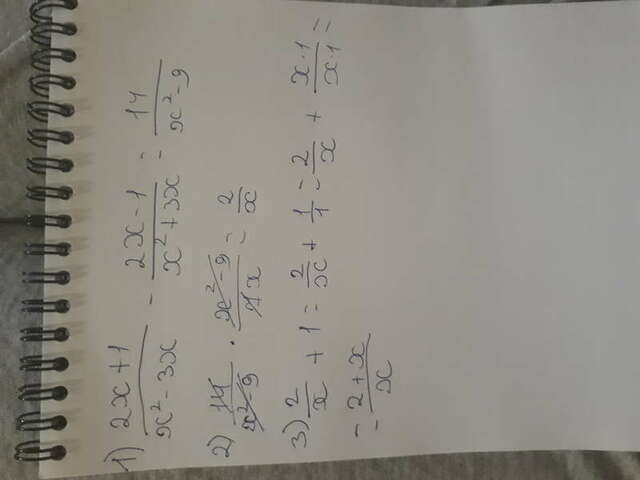 1) (2x+1)/(x²-3x) - (2x-1)/(x²+3x) = 14/(x²-9)
2) 14/(x²-9) · (x²-9)/(7x) = 2/x
3) 2/x + 1 = 2/x + 1/1 = 2/x + (x·1)/(x·1) =
= (2+x)/x